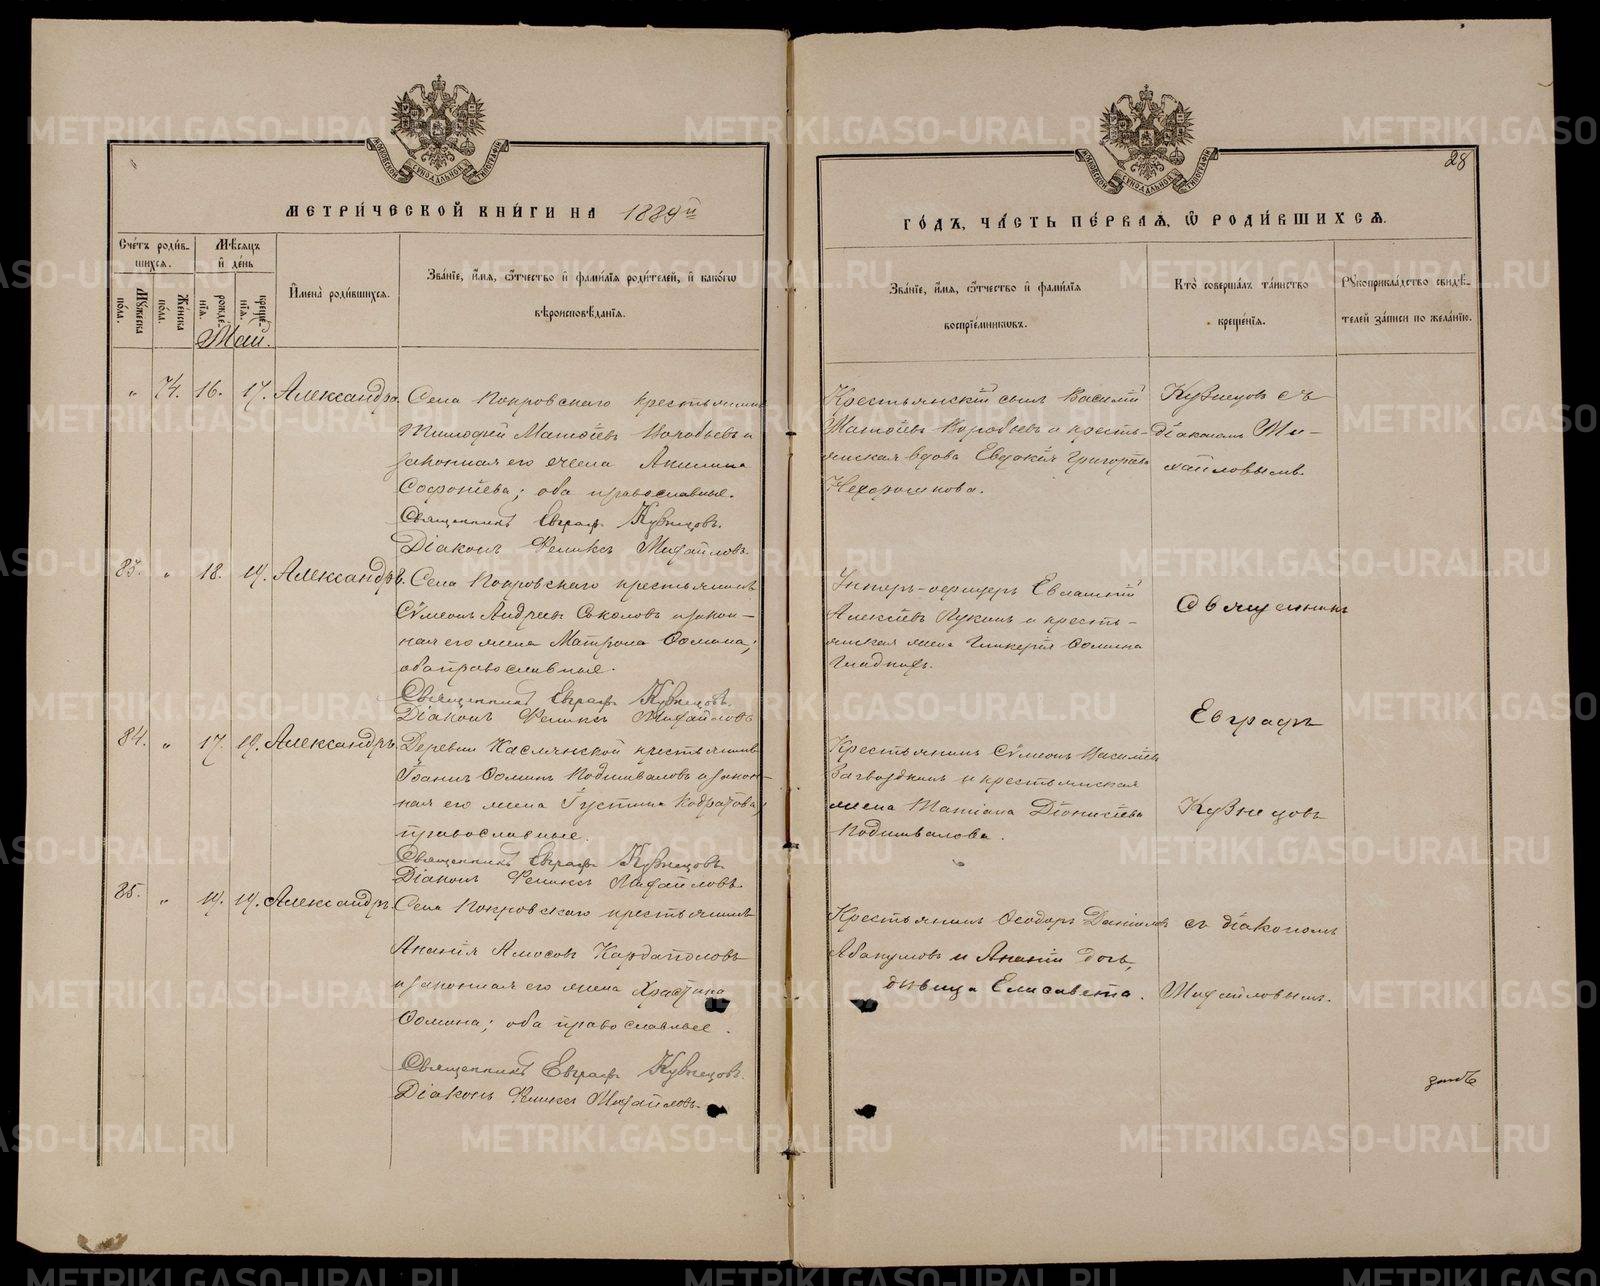 МОСКОВСКОЙ СѴНОДАЛЬНОЙ ТИПОГРАФІИ
МЕТРИ́ЧЕСКОЙ КНИ́ГИ НА 1889й
Сче́тъ роди́вшихсѧ.
Мꙋ́жеска по́ла.
Же́нска по́ла.
Мѣ́сѧцъ и҆ де́нь
рожде́нїѧ.
креще́нїѧ.
Май.
И҆мена̀ роди́вшихсѧ.
Зва́нїе, и҆́мѧ, ѻ҆́тчество и҆ фами́лїѧ роди́телей, и҆ како́гѡ
вѣроисповѣ́данїѧ.
" 74. 16. 17. Александра. Села Покровскаго крестьянинъ
Тимофей Матѳіевъ Воробьевъ и
законная его жена Акилина
Софоніева; оба православные.
Священникъ Евграфъ Кузнецовъ.
Діаконъ Феликсъ Михайловъ
83. " 18. 19. Александръ. Села Покровскаго крестьянинъ
Сѵмеонъ Андреевъ Соколовъ и закон-
ная его жена Матрона Ѳомина;
оба православные.
Священникъ Евграфъ Кузнецовъ.
Діаконъ Феликсъ Михайловъ
84. " 17. 19. Александръ. Деревни Каслянской крестьянинъ
Іоаннъ Ѳоминъ Подшиваловъ и закон-
ная его жена Іустина Кодратова;
православные.
Священникъ Евграфъ Кузнецовъ.
Діаконъ Феликсъ Михайловъ.
85. " 19. 19. Александръ. Села Покровскаго крестьянинъ
Ананія Амосовъ Кардаполовъ
и законная его жена Христина
Ѳомина; оба православные.
Священникъ Евграфъ Кузнецовъ.
Діаконъ Феликсъ Михайловъ.
28
МОСКОВСКОЙ СѴНОДАЛЬНОЙ ТИПОГРАФІИ
ГО́ДЪ, ЧА́СТЬ ПЕ́РВАѦ, Ѡ҆ РОДИ́ВШИХСѦ.
Зва́нїе, и҆́мѧ, ѻ҆́тчество и҆ фами́лїѧ
воспрїе́мниковъ.
Кто̀ соверша́лъ та́инство
креще́нїѧ.
Рꙋкоприкла́дство свидѣ́-
телей за́писи по жела́нїю.
Крестьянскій сынъ Василій
Матѳіевъ Воробьевъ и кресть-
янская вдова Евдокія Григорьева
Нехорошкова.
Кузнецов съ
діакономъ Ми-
хайловымъ.
Унтеръ-офицеръ Евлампій
Алексіевъ Лукинъ и кресть-
янская жена Гликерія Ѳомина
Гладкихъ.
Священникъ
Евграфъ
Крестьянинъ Сѵмеонъ Василіевъ
Загвоздкинъ и крестьянская
жена Татіана Діонисіева
Подшивалова.
Кузнецовъ
Крестьянинъ Ѳеодоръ Даніиловъ
Абакумовъ и Ананіи дочь,
дѣвица Елисавета.
съ діакономъ
Михайловымъ.
METRIKI.GASO-URAL.RU